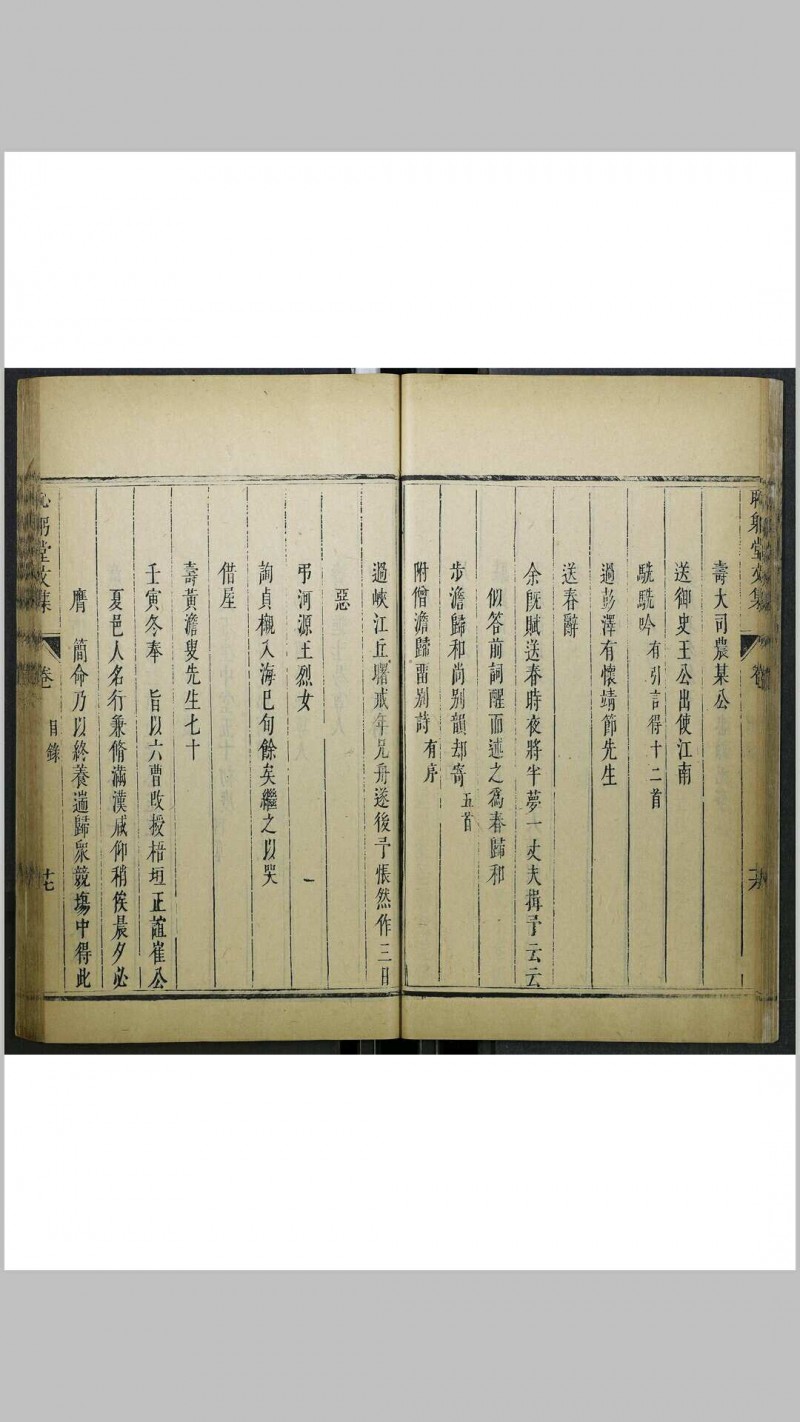 恥躬堂文集 卷
壽大司農某公
送御史王公出使江南
駪駪吟 有引言得十二首
過彭澤有懷靖節先生
送春辭
余既賦送春時夜將半夢一丈夫揖予云云
似答前詞醒而述之爲春歸和
步澹歸和尚别韻却寄 五首
附僧澹歸畱别詩 有序
過峽江丘曙戒年兄舟遂後予悵然作三日
惡
弔河源王烈女 一
詢貞櫬入海已旬餘矣繼之以哭
借屋
壽黃澹叟先生七十
壬寅冬奉 旨以六曹攺授梧垣正誼崔公
夏邑人名行兼脩滿漢咸仰稍俟晨夕必
膺 簡命乃以終養遄歸衆競塲中得此
恥躬堂文集 卷 目錄 十七